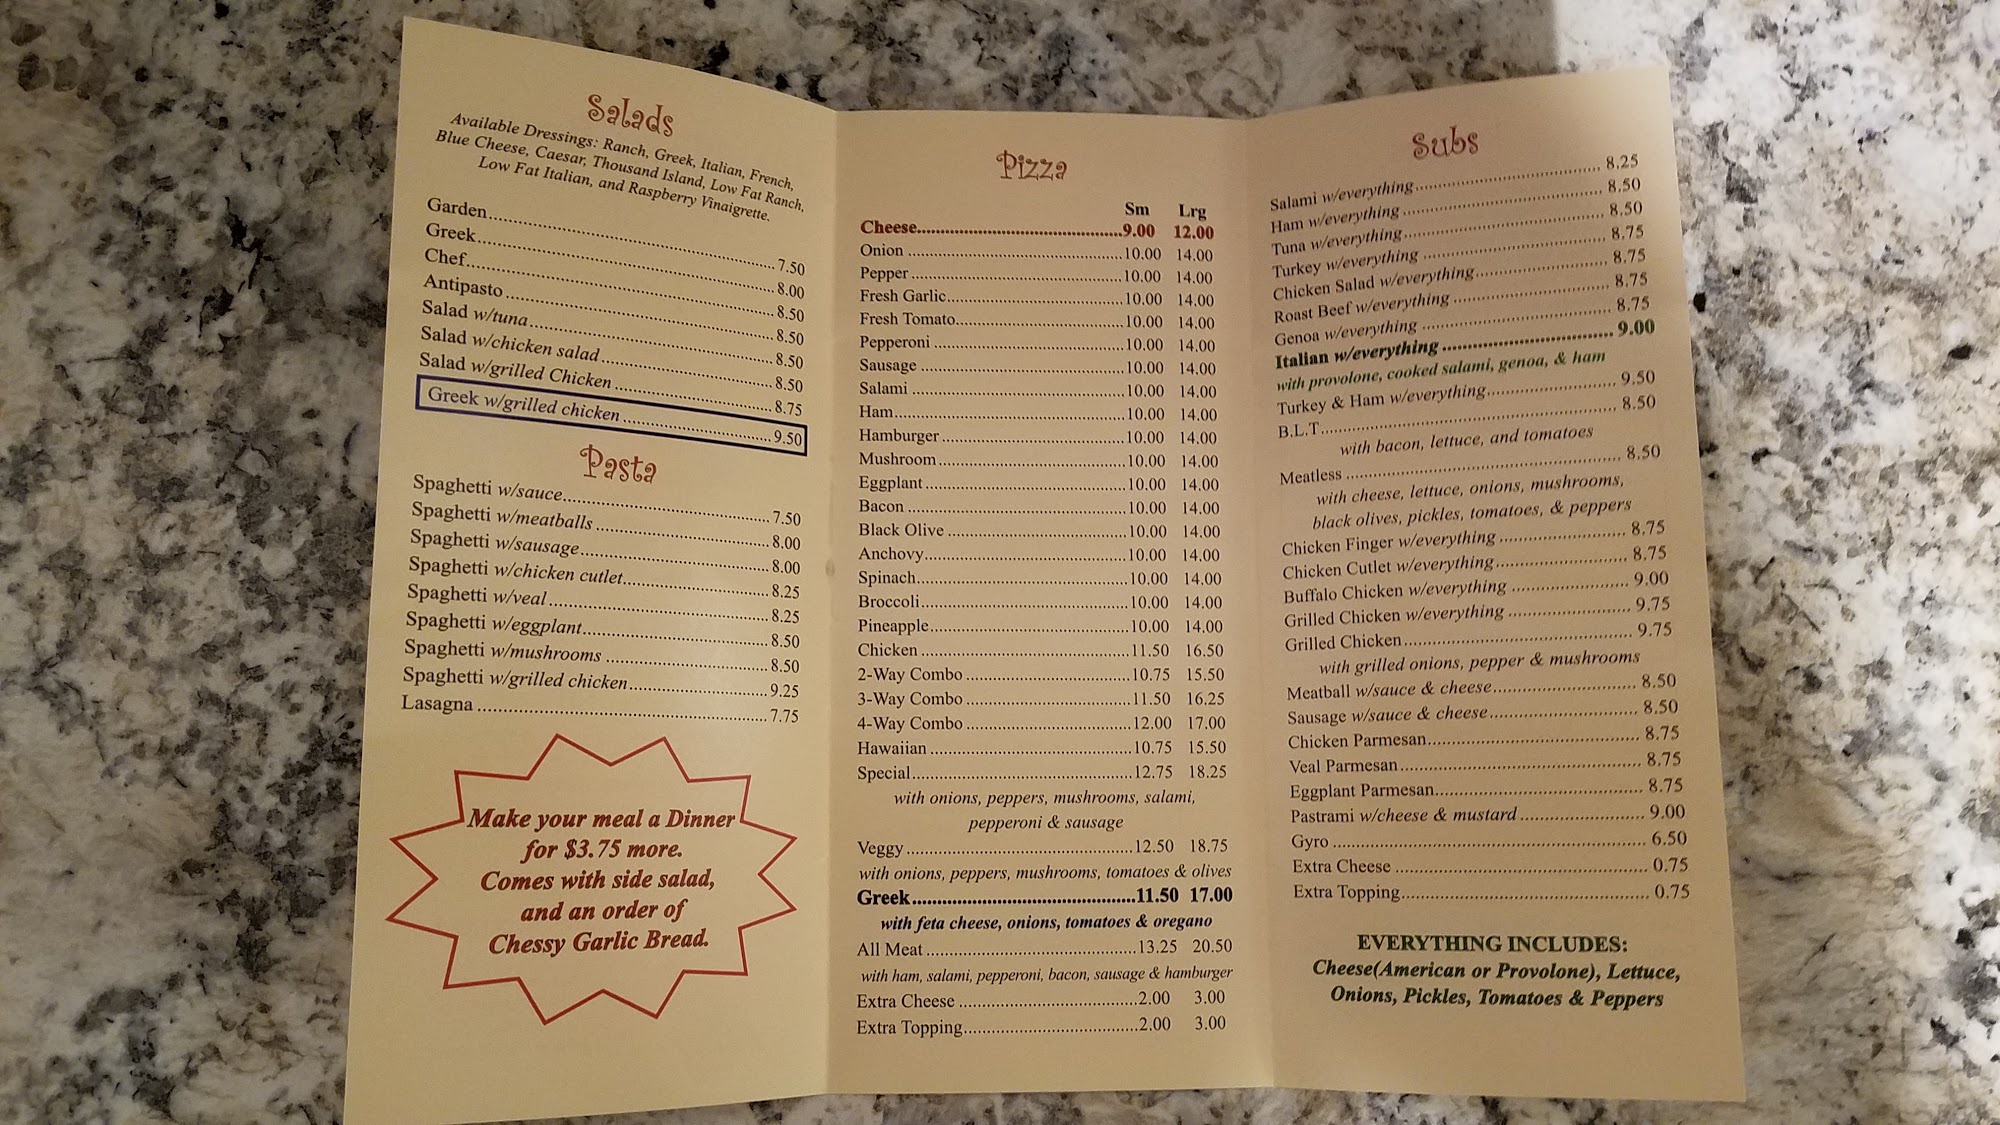 Salads
Available Dressings: Ranch, Greek, Italian, French,
Blue Cheese, Caesar, Thousand Island, Low Fat Ranch,
Low Fat Italian, and Raspberry Vinaigrette.
Garden 7.50
Greek 8.00
Chef 8.50
Antipasto 8.50
Salad w/tuna 8.50
Salad w/chicken salad 8.50
Salad w/grilled Chicken 8.75
Greek w/grilled chicken 9.50
Pasta
Spaghetti w/sauce 7.50
Spaghetti w/meatballs 8.00
Spaghetti w/sausage 8.00
Spaghetti w/chicken cutlet 8.25
Spaghetti w/veal 8.25
Spaghetti w/eggplant 8.50
Spaghetti w/mushrooms 8.50
Spaghetti w/grilled chicken 9.25
Lasagna 7.75
Make your meal a Dinner
for $3.75 more.
Comes with side salad,
and an order of
Chessy Garlic Bread.
Pizza
Sm Lrg
Cheese 9.00 12.00
Onion 10.00 14.00
Pepper 10.00 14.00
Fresh Garlic 10.00 14.00
Fresh Tomato 10.00 14.00
Pepperoni 10.00 14.00
Sausage 10.00 14.00
Salami 10.00 14.00
Ham 10.00 14.00
Hamburger 10.00 14.00
Mushroom 10.00 14.00
Eggplant 10.00 14.00
Bacon 10.00 14.00
Black Olive 10.00 14.00
Anchovy 10.00 14.00
Spinach 10.00 14.00
Broccoli 10.00 14.00
Pineapple 10.00 14.00
Chicken 11.50 16.50
2-Way Combo 10.75 15.50
3-Way Combo 11.50 16.25
4-Way Combo 12.00 17.00
Hawaiian 10.75 15.50
Special 12.75 18.25
with onions, peppers, mushrooms, salami,
pepperoni & sausage
Veggy 12.50 18.75
with onions, peppers, mushrooms, tomatoes & olives
Greek 11.50 17.00
with feta cheese, onions, tomatoes & oregano
All Meat 13.25 20.50
with ham, salami, pepperoni, bacon, sausage & hamburger
Extra Cheese 2.00 3.00
Extra Topping 2.00 3.00
Subs
Salami w/everything 8.25
Ham w/everything 8.50
Tuna w/everything 8.50
Turkey w/everything 8.75
Chicken Salad w/everything 8.75
Roast Beef w/everything 8.75
Genoa w/everything 8.75
Italian w/everything 9.00
with provolone, cooked salami, genoa, & ham
Turkey & Ham w/everything 9.50
B.L.T 8.50
with bacon, lettuce, and tomatoes
Meatless 8.50
with cheese, lettuce, onions, mushrooms,
black olives, pickles, tomatoes, & peppers
Chicken Finger w/everything 8.75
Chicken Cutlet w/everything 8.75
Buffalo Chicken w/everything 9.00
Grilled Chicken w/everything 9.75
Grilled Chicken 9.75
with grilled onions, pepper & mushrooms
Meatball w/sauce & cheese 8.50
Sausage w/sauce & cheese 8.50
Chicken Parmesan 8.75
Veal Parmesan 8.75
Eggplant Parmesan 8.75
Pastrami w/cheese & mustard 9.00
Gyro 6.50
Extra Cheese 0.75
Extra Topping 0.75
EVERYTHING INCLUDES:
Cheese(American or Provolone), Lettuce,
Onions, Pickles, Tomatoes & Peppers